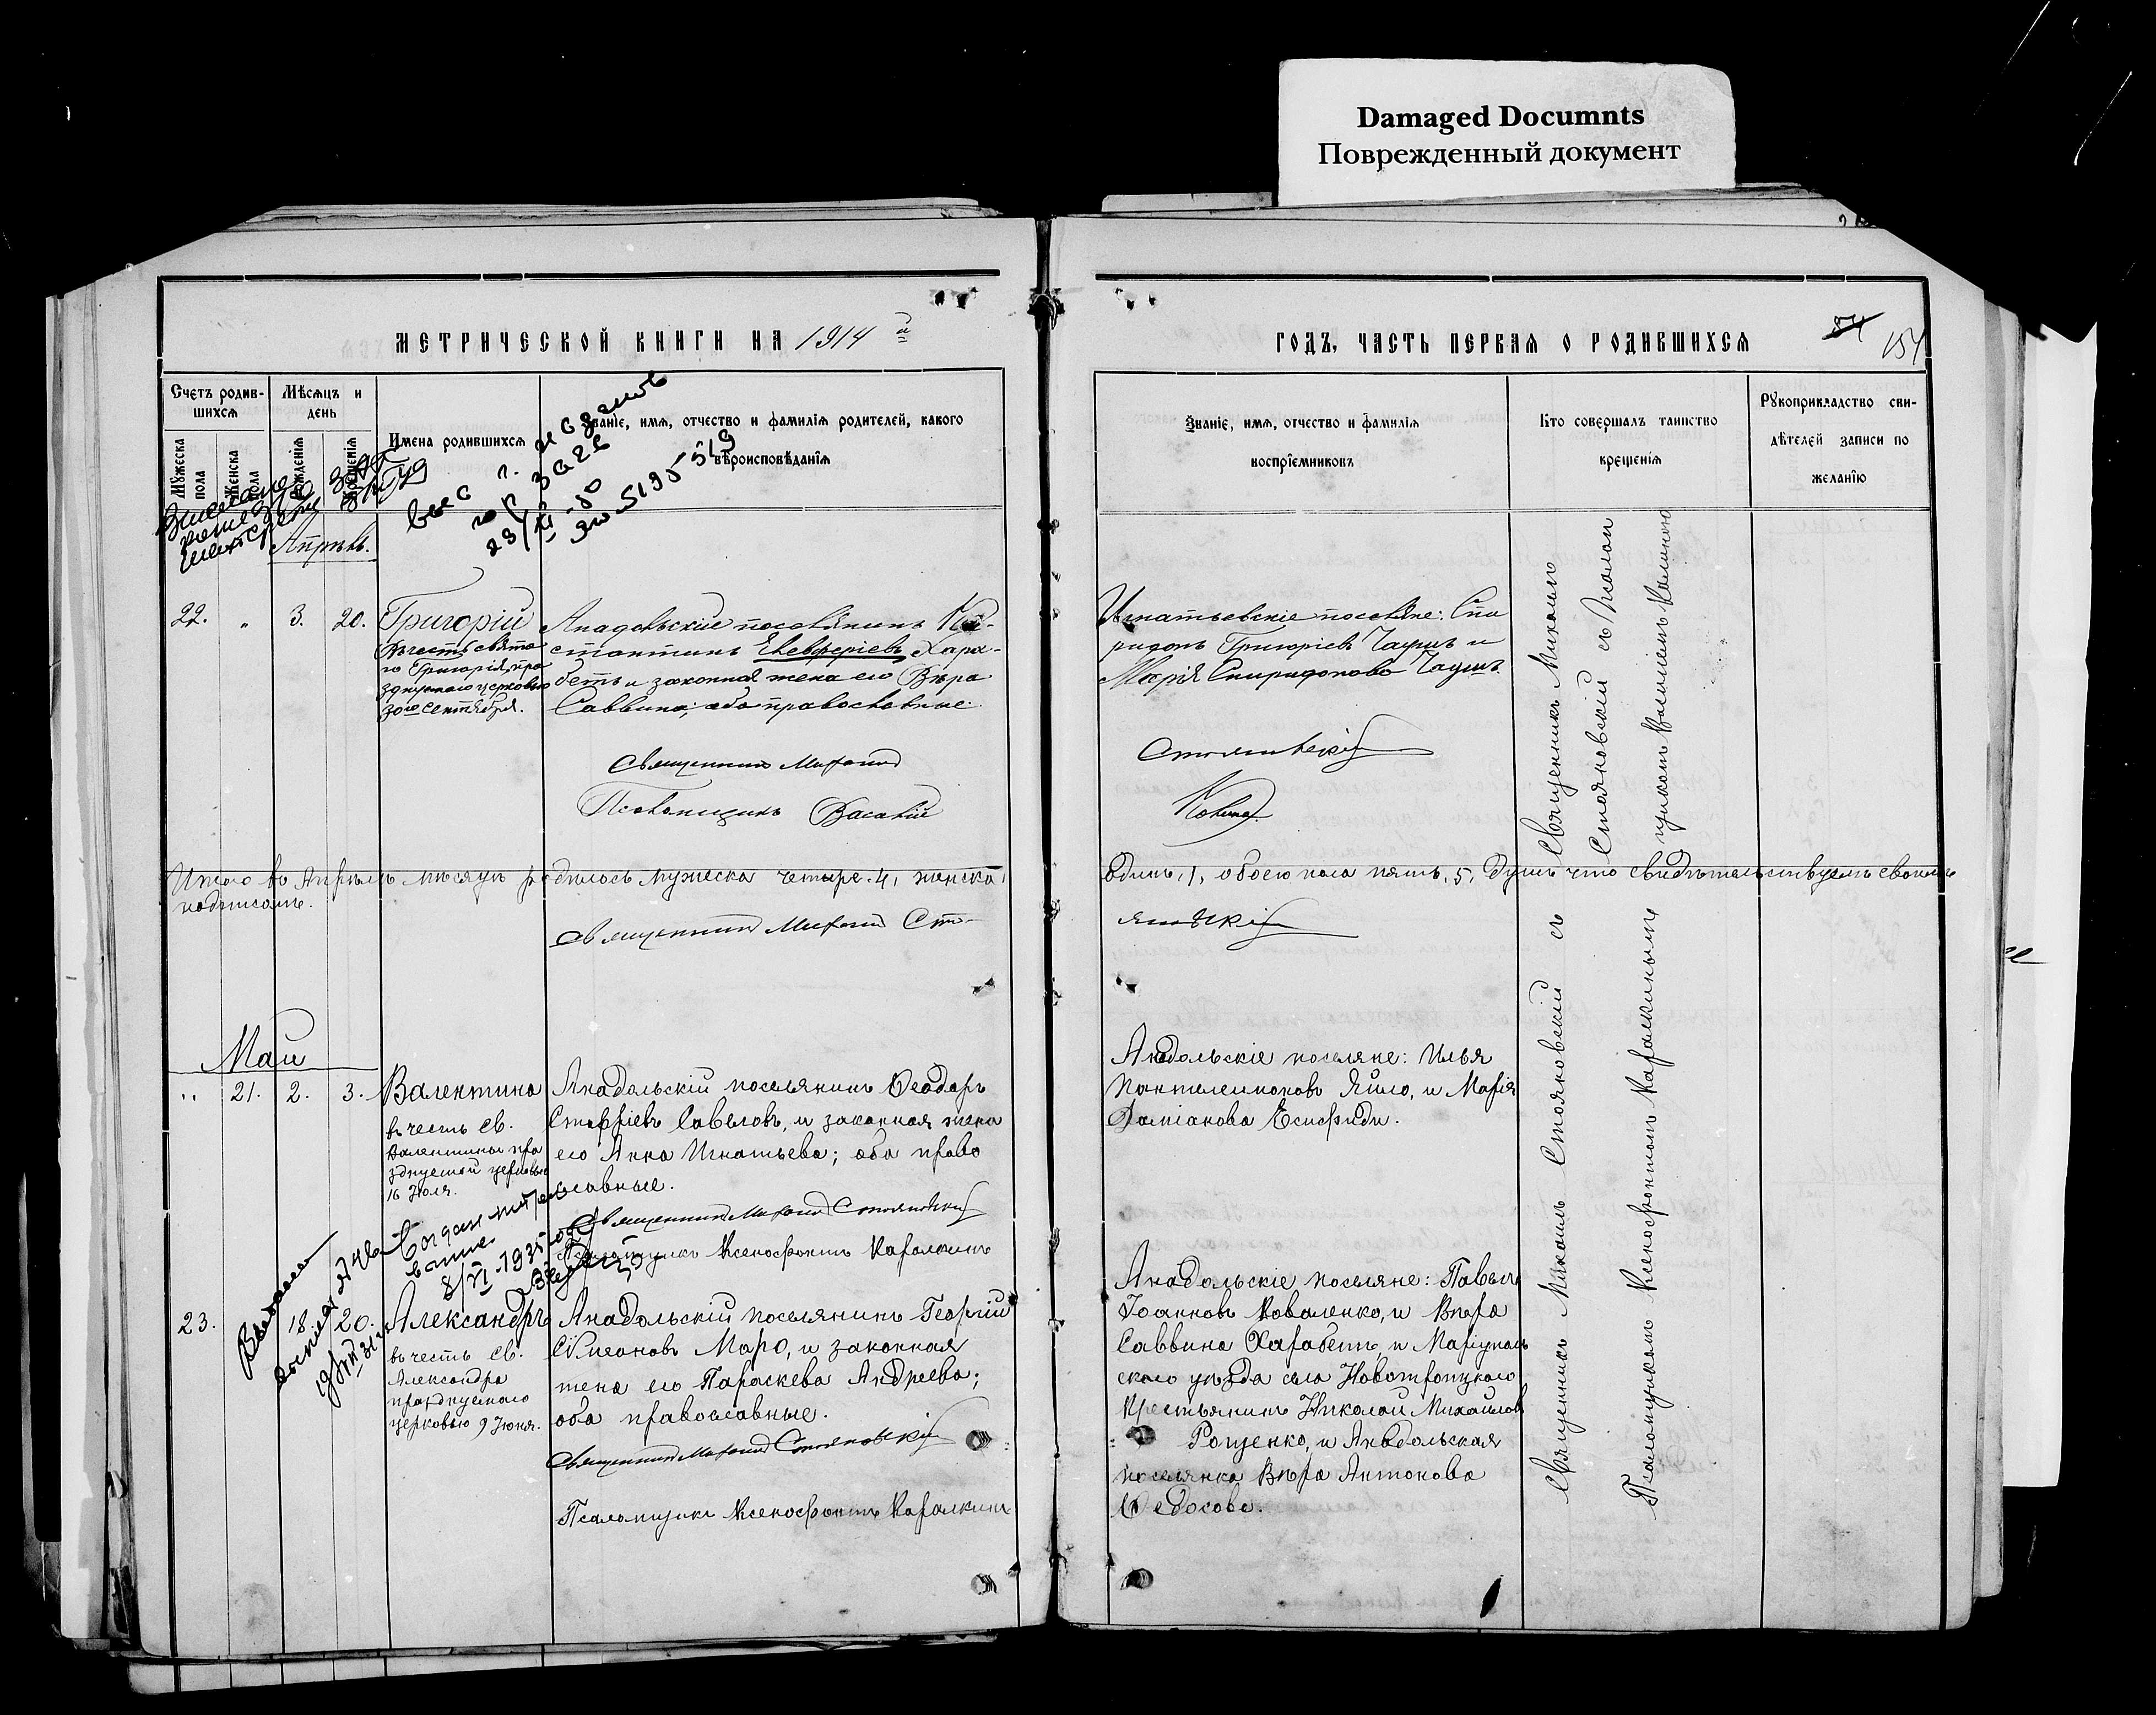 Damaged Documnts
Поврежденный документ
МЕТРИЧЕСКОЙ КНИГИ НА 1914 й
ГОДЪ, ЧАСТЬ ПЕРВАЯ О РОДИВШИХСЯ
54 154
Счетъ родив-
шихся
Мѣсяцъ и
день
Мужеска
пола
Женска
пола
Рожденія
Крещенія
Имена родившихся
Званіе, имя, отчество и фамилія родителей, какого
вѣроисповѣданія
Званіе, имя, отчество и фамилія
воспріемниковъ
Кто совершалъ таинство
крещенія
Рукоприкладство сви-
дѣтелей записи по
желанію
Апрѣль.
22. „ 3. 20. Григорій
Въ честь свято
го Григорія, пра
зднуемаго церковью
30го сентября.
Анадольскіе поселянинъ Кон-
стантинъ Елевферіевъ Хара-
бетъ и законная жена его Вѣра
Саввина; оба православные.
Священникъ Михаилъ
Псаломщикъ Василій
Игнатьевскіе поселяне: Спи
ридонъ Григоріевъ Чаушъ и
Марія Спиридонова Чаушъ.
Стояновскій
Священникъ Михаилъ
Стояновскій съ Псалом
щикомъ Василіемъ
Итого въ Апрѣлѣ мѣсяцѣ родилось мужеска четыре. 4, женска,
одинъ, 1, обоего пола пять, 5, душъ что свидѣтельствуемъ своимъ
подписомъ.
Священникъ Михаилъ Сто-
яновскій
Май
„ 21. 2. 3. Валентина
въ честь св.
Валентины пра
зднуемой церковью
16 Іюля.
Анадольскій поселянинъ Ѳеодоръ
Савеловъ, и законная жена
его Анна Игнатьева; оба право
славные.
Священникъ Михаилъ Стояновскій
Псаломщикъ Ксенофонтъ Каралкинъ
Анадольскіе поселяне: Илья
Пантелеимоновъ Яйло, и Марія
Даміанова Есифиди.
8/VI-1935
23. 18. 20. Александръ
въ честь св.
Александра
празднуемаго
церковью 9 Іюня.
Анадольскій поселянинъ Георгій
Симеоновъ Маро, и законная
жена его Параскева Андреева;
оба православные.
Священникъ Михаилъ Стояновскій
Псаломщикъ Ксенофонтъ Каралкинъ
Анадольскіе поселяне: Павелъ
Іоанновъ Коваленко, и Вѣра
Саввина Харабетъ, и Маріуполь
скаго уѣзда села Новотроицкаго
Крестьянинъ Николай Михайловъ
Рощенко, и Анадольская
поселянка Вѣра Антонова
Ѳедосова.
Священникъ Михаилъ Стояновскій съ
Псаломщикомъ Ксенофонтомъ Каралкинымъ